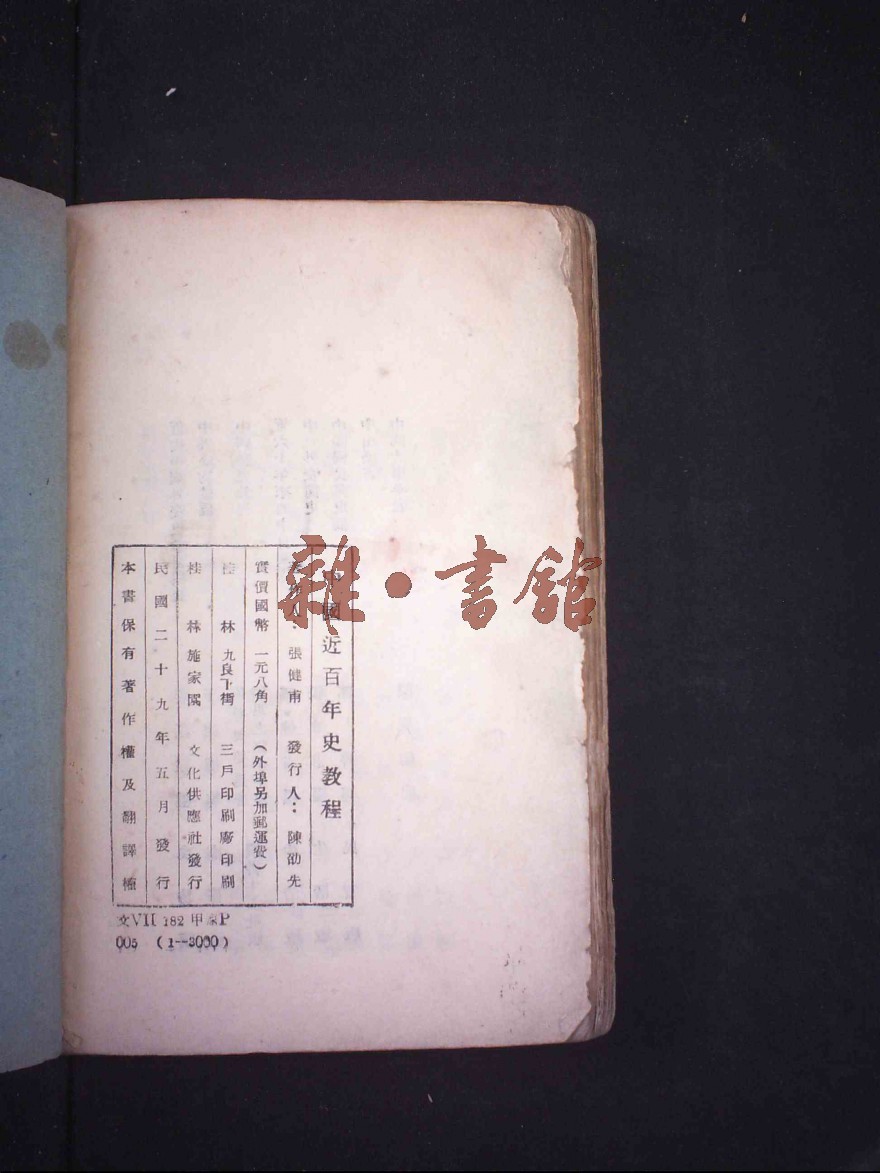 國近百年史教程
人：張健甫　發行人：陳劭先
實價國幣　一元八角　（外埠另加郵運費）
桂　林　九良下街　三戶印刷廠印刷
桂　林　施家園　文化供應社發行
民國二十九年五月發行
本書保有著作權及翻譯權
文VII 182 甲 P
005 (1--3000)
雜·書館